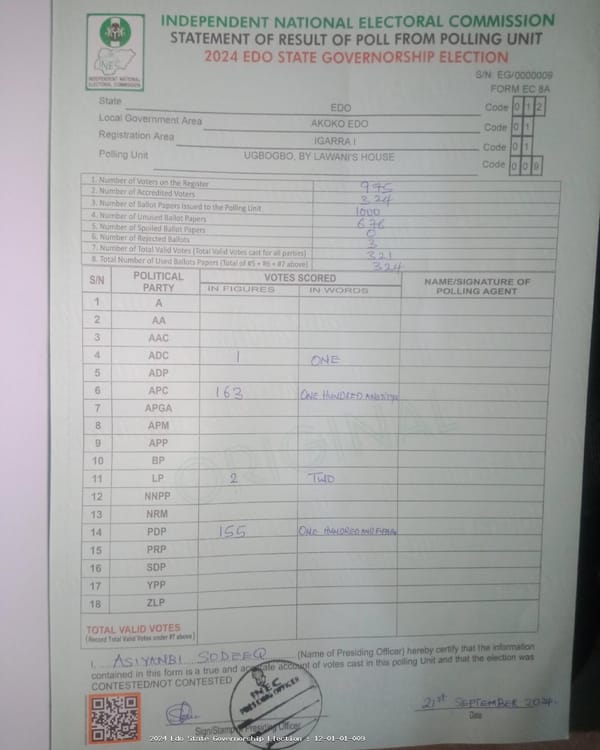 INDEPENDENT NATIONAL ELECTORAL COMMISSION
STATEMENT OF RESULT OF POLL FROM POLLING UNIT
2024 EDO STATE GOVERNORSHIP ELECTION
INEC
INDEPENDENT NATIONAL ELECTORAL COMMISSION
S/N: EG/0000009
FORM EC 8A
State EDO Code 0 1 2
Local Government Area AKOKO EDO Code 0 1
Registration Area IGARRA I Code 0 1
Polling Unit UGBOGBO, BY LAWANI'S HOUSE Code 0 0 9
1. Number of Voters on the Register 975
2. Number of Accredited Voters 324
3. Number of Ballot Papers Issued to the Polling Unit 1000
4. Number of Unused Ballot Papers 676
5. Number of Spoiled Ballot Papers 0
6. Number of Rejected Ballots 3
7. Number of Total Valid Votes (Total Valid Votes cast for all parties) 321
8. Total Number of Used Ballots Papers (Total of #5 + #6 + #7 above) 324
S/N POLITICAL PARTY VOTES SCORED NAME/SIGNATURE OF POLLING AGENT
IN FIGURES IN WORDS
1 A
2 AA
3 AAC
4 ADC 1 ONE
5 ADP
6 APC 163 ONE HUNDRED AND
7 APGA
8 APM
9 APP
10 BP
11 LP 2 TWO
12 NNPP
13 NRM
14 PDP 155 ONE HUNDRED AND
15 PRP
16 SDP
17 YPP
18 ZLP
ORIGINAL
TOTAL VALID VOTES
(Record Total Valid Votes under #7 above)
I, ASIYANBI SODEEQ (Name of Presiding Officer) hereby certify that the information
contained in this form is a true and accurate account of votes cast in this polling Unit and that the election was
CONTESTED/NOT CONTESTED
INEC
PRESIDING OFFICER
21st SEPTEMBER 2024
Sign/Stamp Presiding Officer Date
2024 Edo State Governorship Election : 12-01-01-009